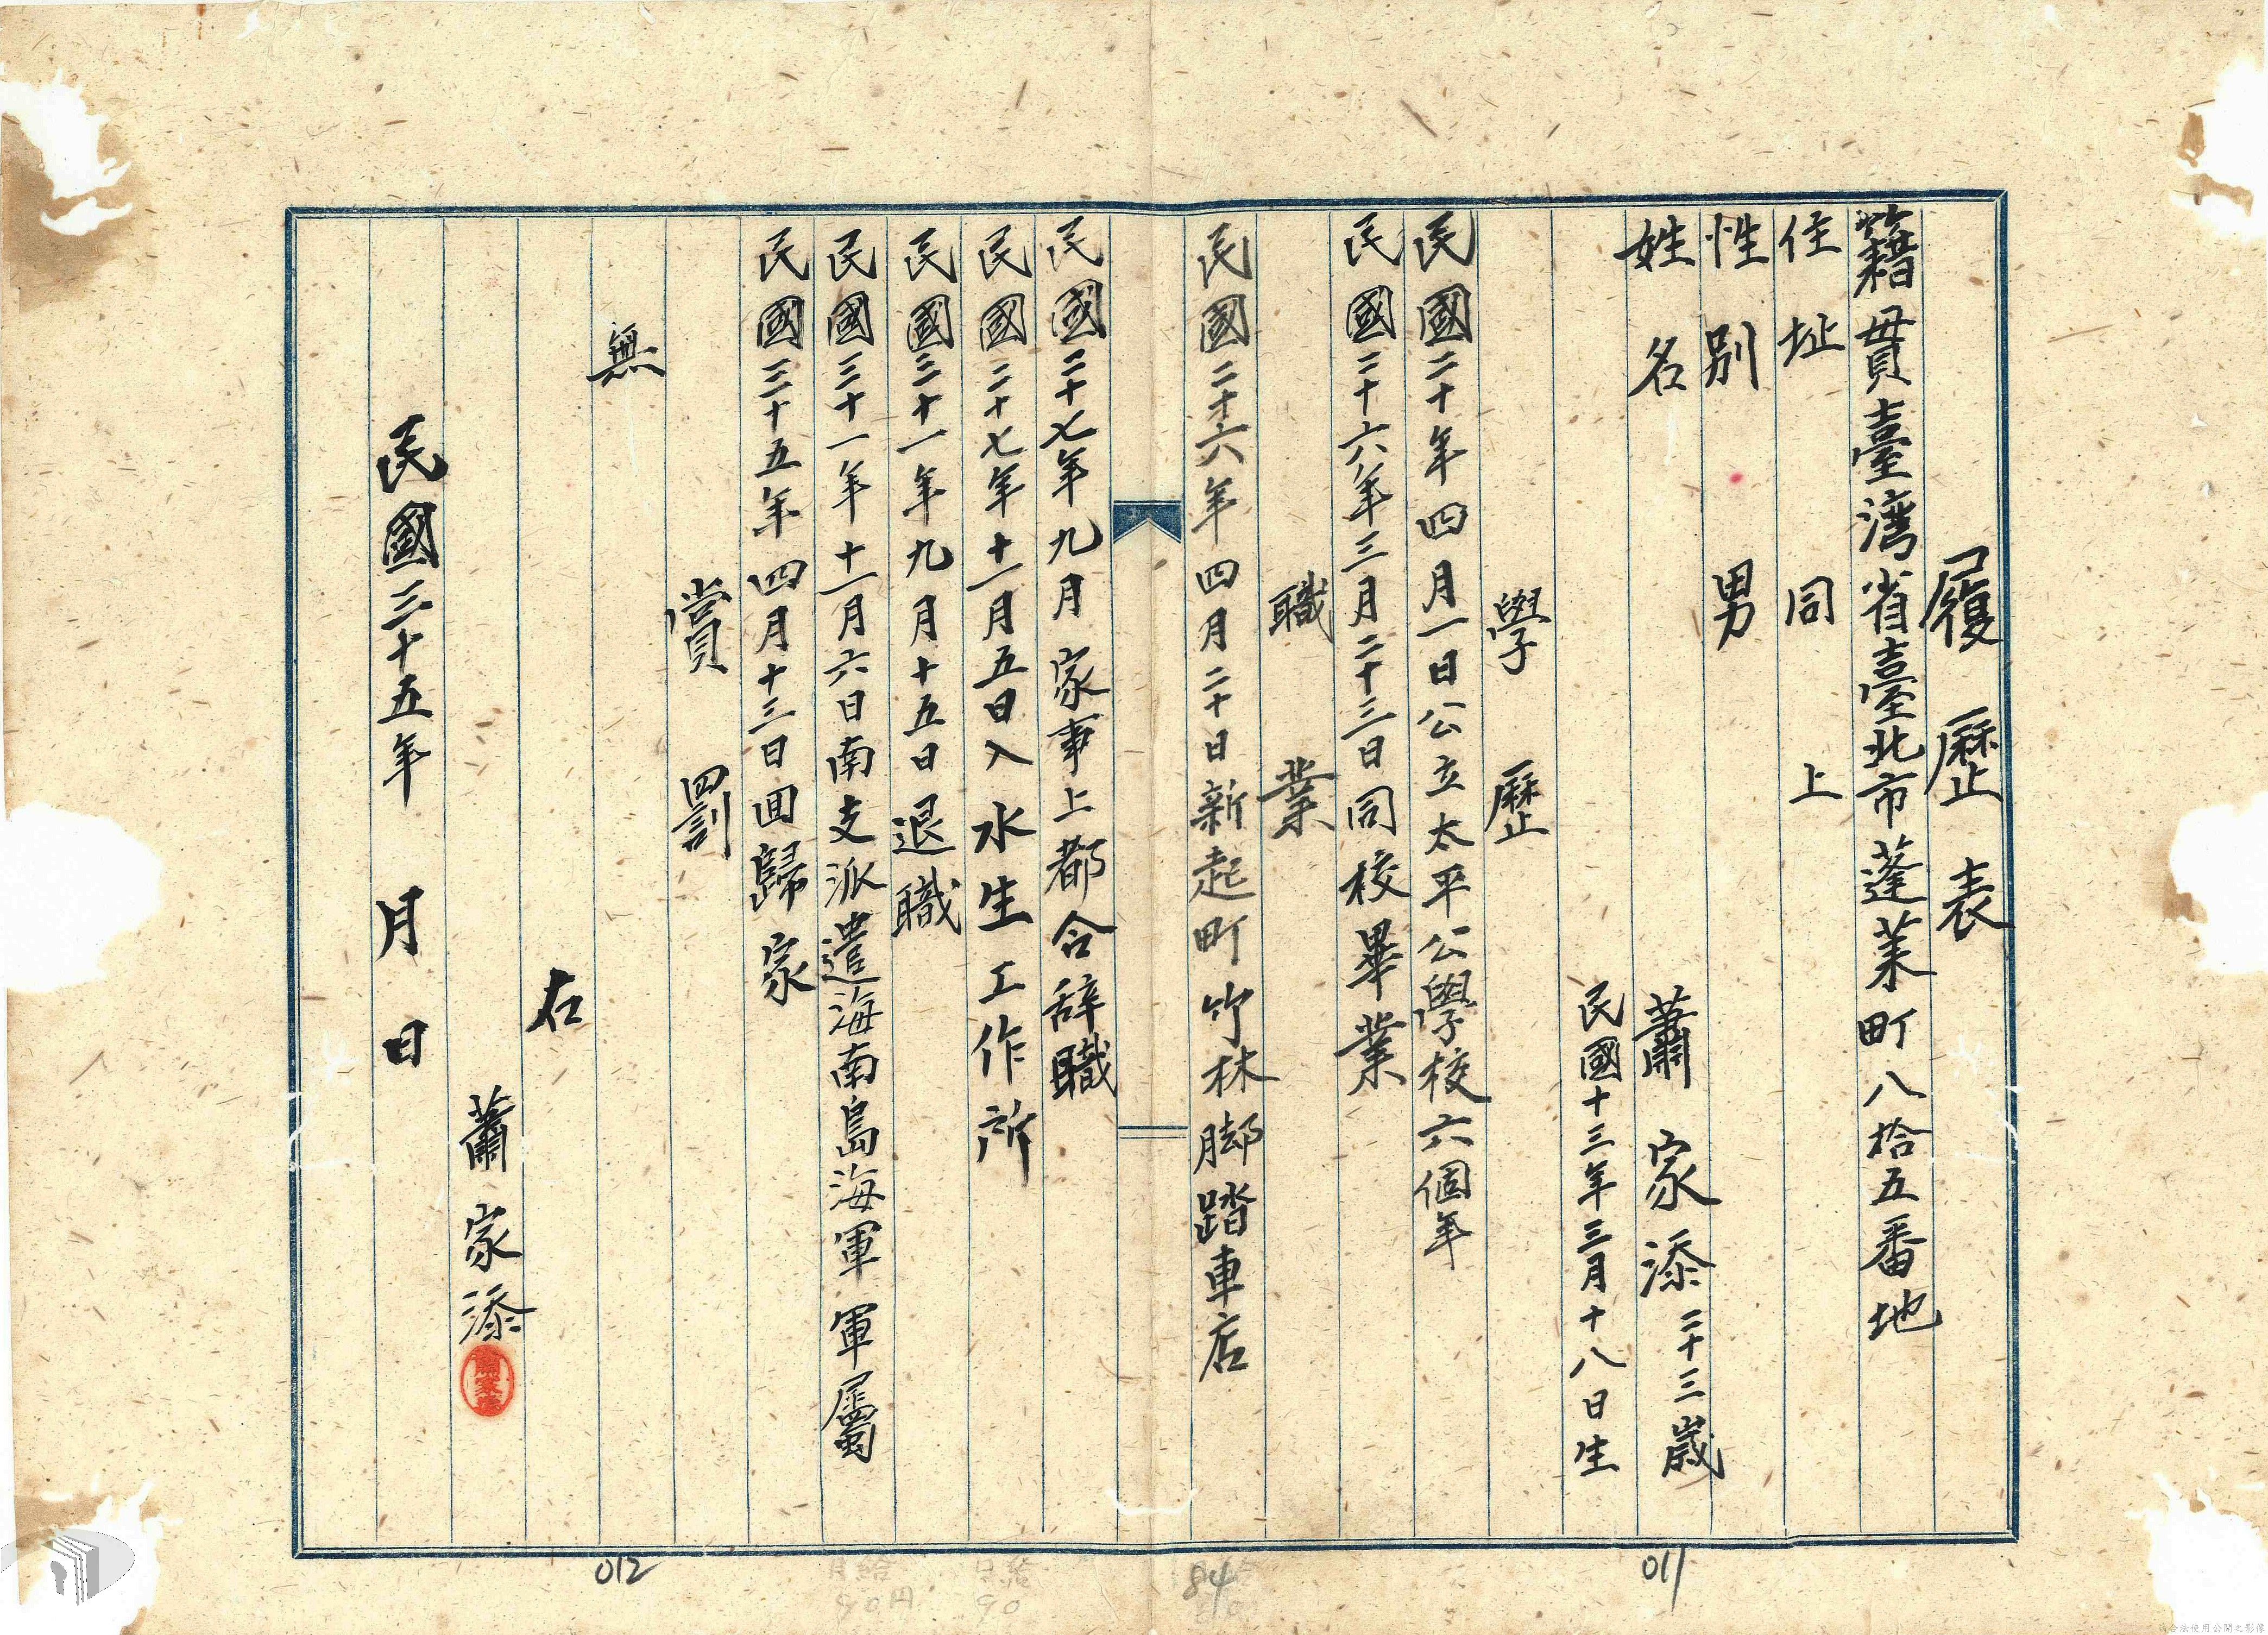 履歷表
籍貫臺灣省臺北市蓬萊町八拾五番地
住址 同上
性別 男
姓名 蕭家添 二十三歲
民國十三年三月十八日生
學歷
民國二十年四月一日公立太平公學校六個年
民國二十六年三月二十三日同校畢業
職業
民國二十六年四月二十日新起町竹林脚踏車店
民國二十七年九月 家事上都合辞職
民國二十七年十一月五日入水生工作所
民國三十一年九月十五日退職
民國三十一年十一月六日南支派遣海南島海軍軍屬
民國三十五年四月十三日回歸家
賞罰
無
右
蕭家添
民國三十五年 月 日
011
84
日給
90
月給
90円
012
請合法使用公開之影像